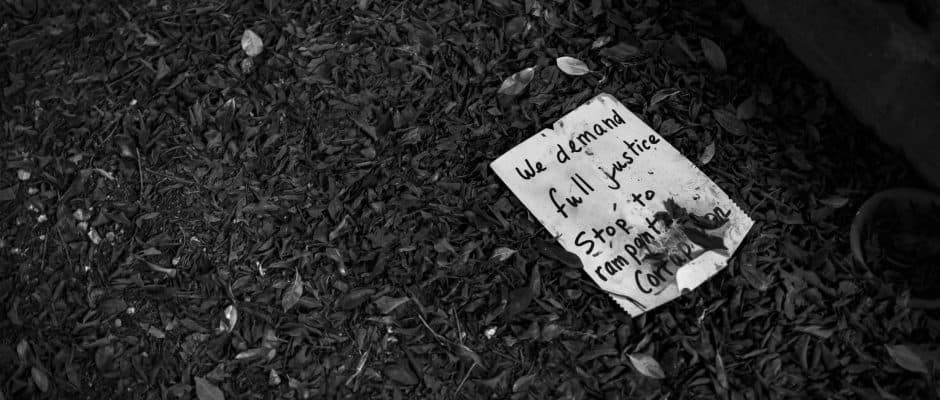 We demand
full justice
Stop to
rampant